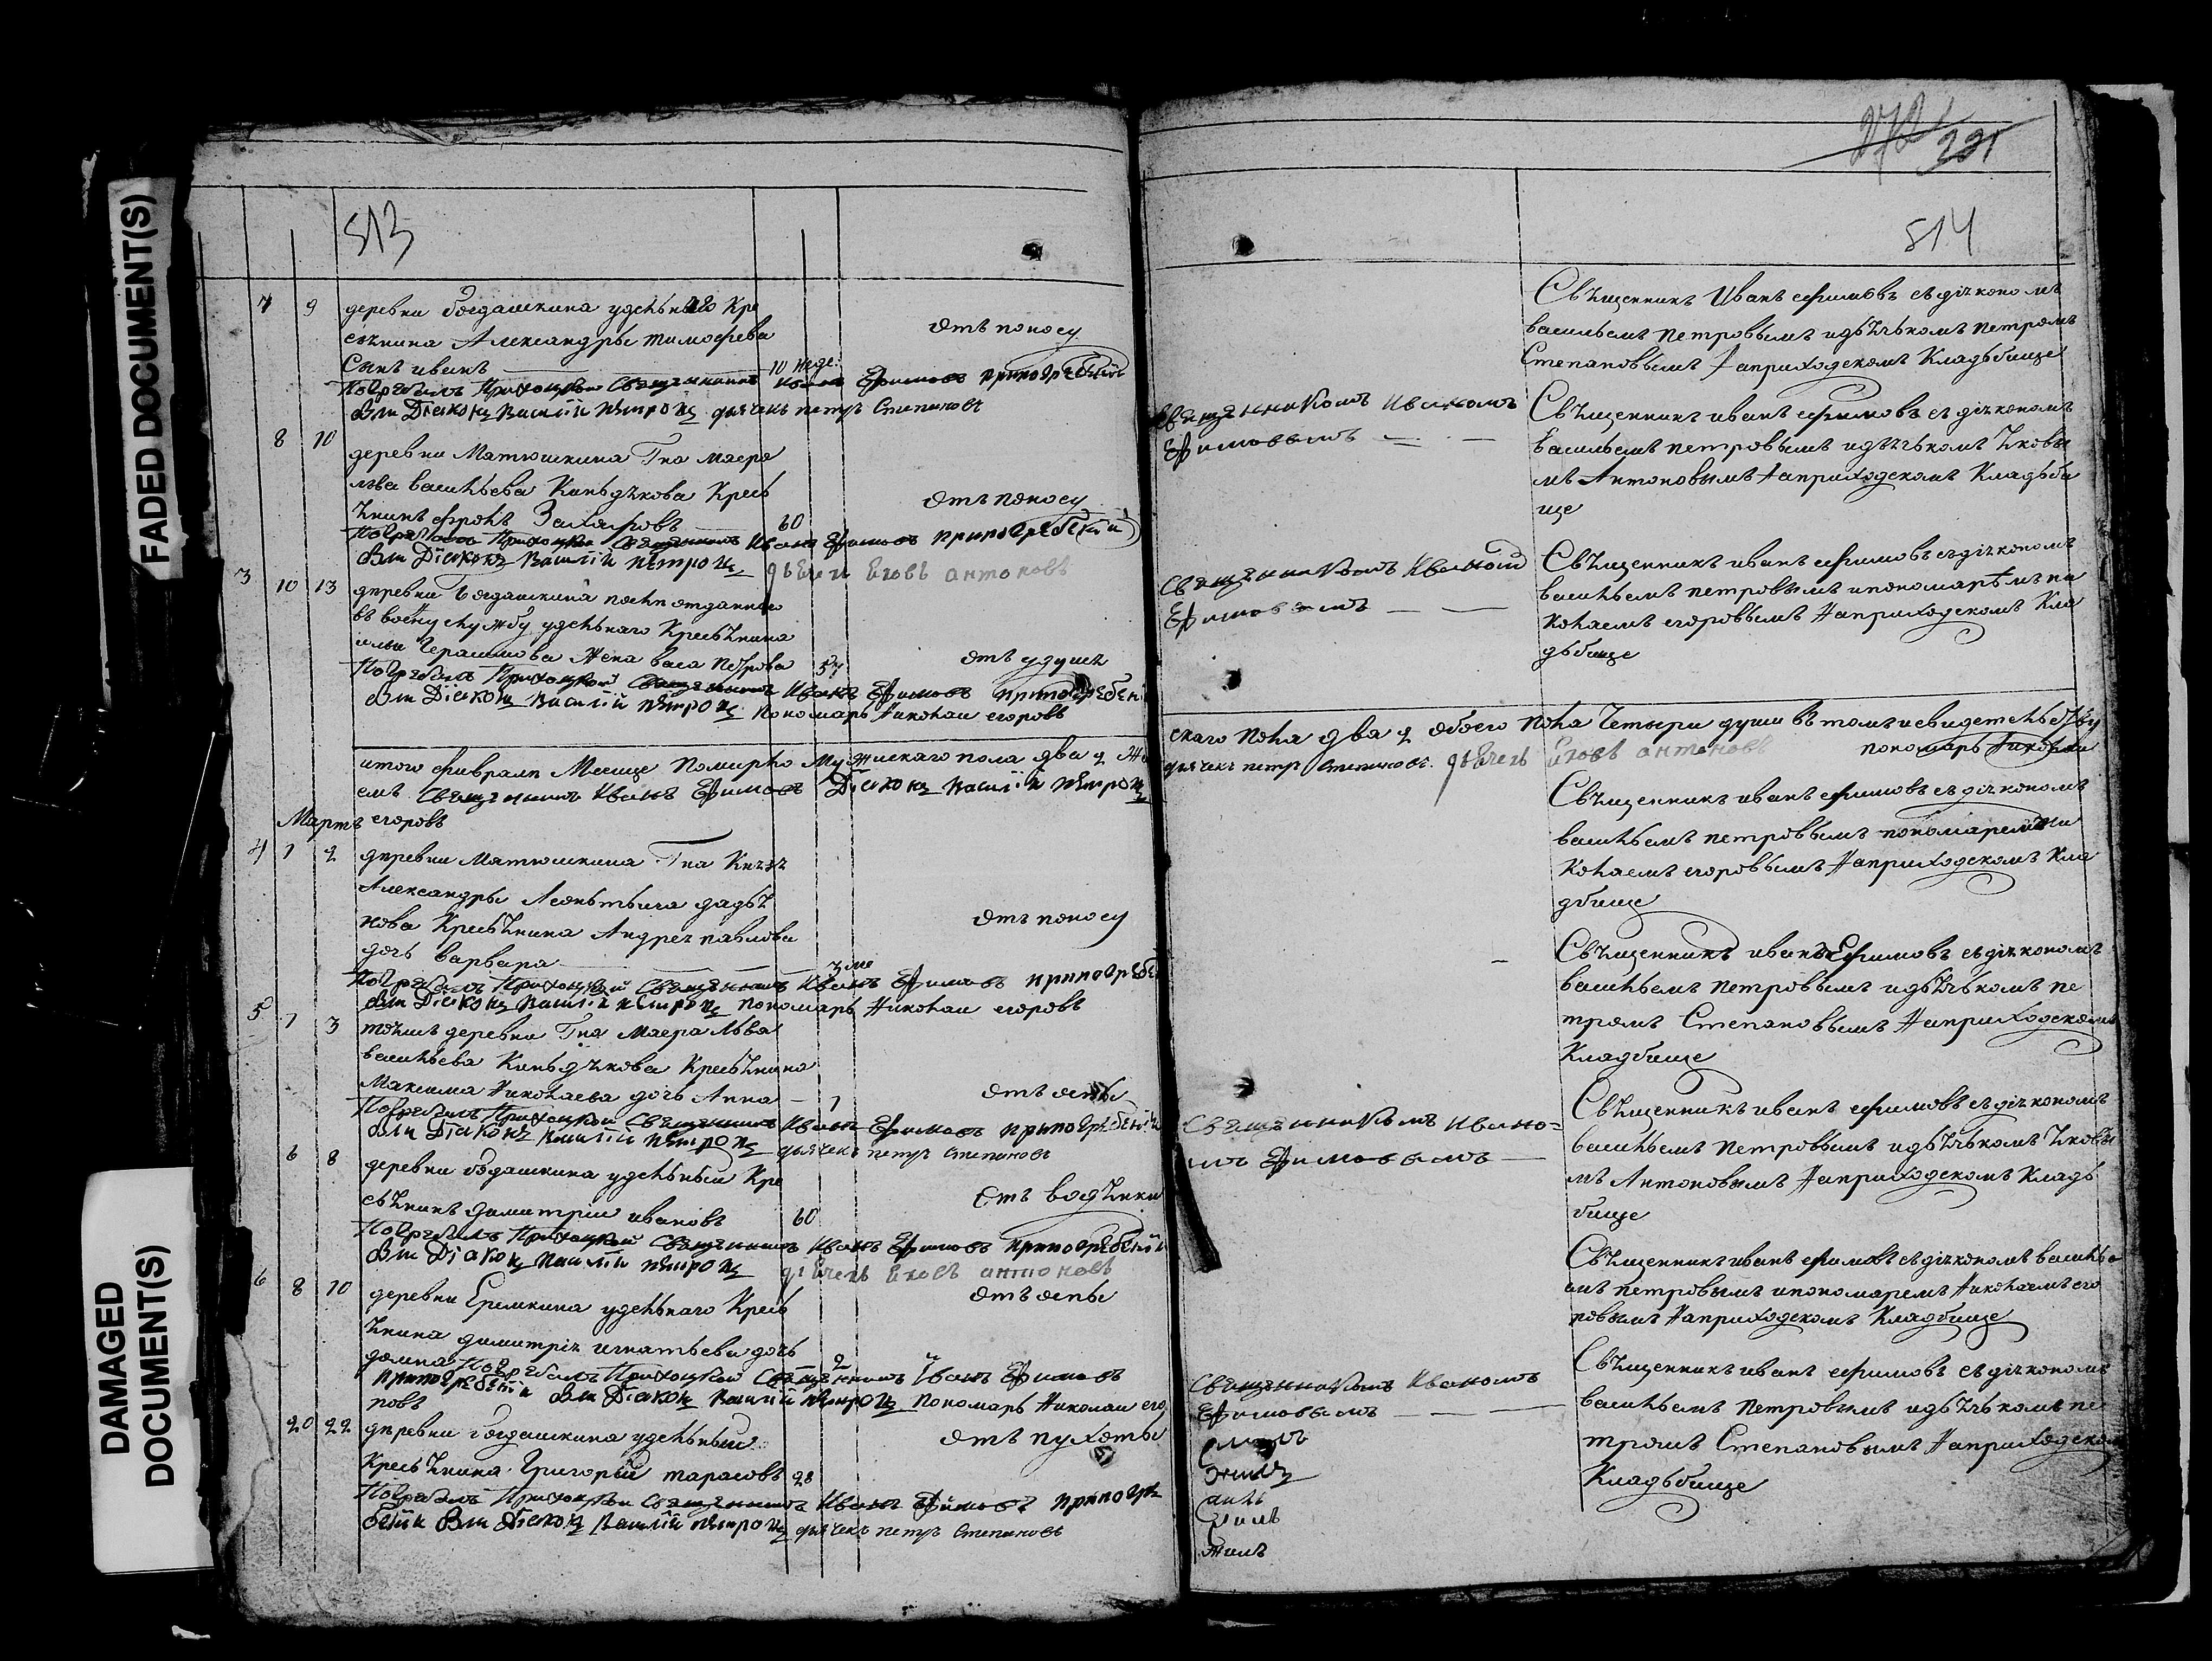 FADED DOCUMENT(S)
DAMAGED
DOCUMENT(S)
513
7 9 деревни богдашкина удельнаго Кре
стьянина Александры тимофеева
Сынъ иванъ 10 неде:
отъ поносу
Погребалъ Приходской Священникъ Иванъ Ефимовъ при погребении
были Дїаконъ василїй петровъ дьячекъ петръ Степановъ
8 10
деревни Матюшкина Гна маера
льва васильева Киньдякова Кресь
янинъ фролъ Захаровъ 60
отъ поносу
Погребалъ Приходской Священникъ Иванъ Ефимовъ при погребении
были Дїаконъ василїй петровъ дьячекъ Яковъ антоновъ
3 10 13 деревни Богдашкина после отданнаго
въ военну службу удельнаго Кресьянина
ильи Герасимова Жена васа петрова 57
отъ удушя
Погребалъ Приходской Священникъ Иванъ Ефимовъ при погребении
были Дїаконъ василїй петровъ пономарь Николаи егоровъ
итого февраля Месяце Помирло Мужискаго пола два 2 Же
емъ Священникъ Иванъ Ефимовъ Дїаконъ василїй петровъ
Мартъ егоровъ
4 1 2 деревни матюшкина Гна Князя
Александры Леонтьича дадья
нова Кресьянина Андрея павлова
дочь варвара
отъ поносу
Погребалъ Приходской Священникъ Иванъ Ефимовъ при погребе
были Дїаконъ василїй петровъ пономарь Николаи егоровъ
5 1 3 тояжъ деревни Гна Маера Льва
васильева Киньдякова Кресьянина
Максима Николаева дочь Анна 1
отъ оспы
Погребалъ Приходской Священникъ Иванъ Ефимовъ при погребении
были Дїаконъ василїй петровъ дьячекъ петръ Степановъ
6 8 деревни богдашкина удельный Кре
сьянинъ димитрии ивановъ 60
отъ водянки
Погребалъ Приходской Священникъ Иванъ Ефимовъ при погребении
были Дїаконъ василїй петровъ дьячекъ Яковъ антоновъ
6 8 10 деревни Еремкина удельнаго Кресь
янина димитрия игнатьева дочь
домна 2
отъ оспы
Погребалъ Приходской Священникъ Иванъ Ефимовъ
при погребении были Дїаконъ василїй петровъ пономарь Николаи его
ровъ
20 22 деревни богдашкина удельный
Кресьянина Григорьи тарасовъ 28
отъ пухоты
Погребалъ Приходской Священникъ Иванъ Ефимовъ при погре
бении были Дїаконъ василїй петровъ дьячекъ петръ Степановъ
221
514
Священникъ Иванъ ефимовъ съ діякономъ
васильемъ петровымъ и дьячькомъ петромъ
Степановымъ На приходскомъ Кладьбище
Священникомъ Иваномъ
Ефимовымъ
Священникъ иванъ ефимовъ съ діякономъ
васильемъ петровымъ и дьячькомъ Яковы
мъ Антоновымъ На приходскомъ Кладьби
ще
Священникомъ Иваном
Ефимовымъ
Священникъ иванъ ефимовъ съ діякономъ
васильемъ петровымъ и пономарѣмъ ни
колаемъ егоровымъ На приходскомъ Кла
дьбище
скаго пола два 2 обоего пола Четыри души въ томъ и свидетельству
дьячекъ петръ Степановъ. дьячекъ Яковъ антоновъ пономарь Николаи
Священникъ иванъ ефимовъ съ діякономъ
васильемъ петровымъ пономаремъ ни
колаемъ егоровымъ На приходскомъ Кла
дбище
Священникъ иванъ Ефимовъ съ діякономъ
васильемъ петровымъ и дьячькомъ пе
тромъ Степановымъ На приходскомъ
Кладбище
Священникомъ Ивано-
мъ Ефимовымъ
Священникъ иванъ ефимовъ съ діякономъ
васильемъ петровымъ и дьячькомъ Яковы
мъ Антоновымъ На приходскомъ Кладь
бище
Священникъ иванъ ефимовъ съ діякономъ василье
мъ петровымъ и пономаремъ Николаемъ его
ровымъ На приходскомъ Кладбище
Священникомъ Иваномъ
Ефимовымъ
Священникъ иванъ ефимовъ съ діякономъ
васильемъ петровымъ и дьячькомъ пе
тромъ Степановымъ На приходском
Кладьбище